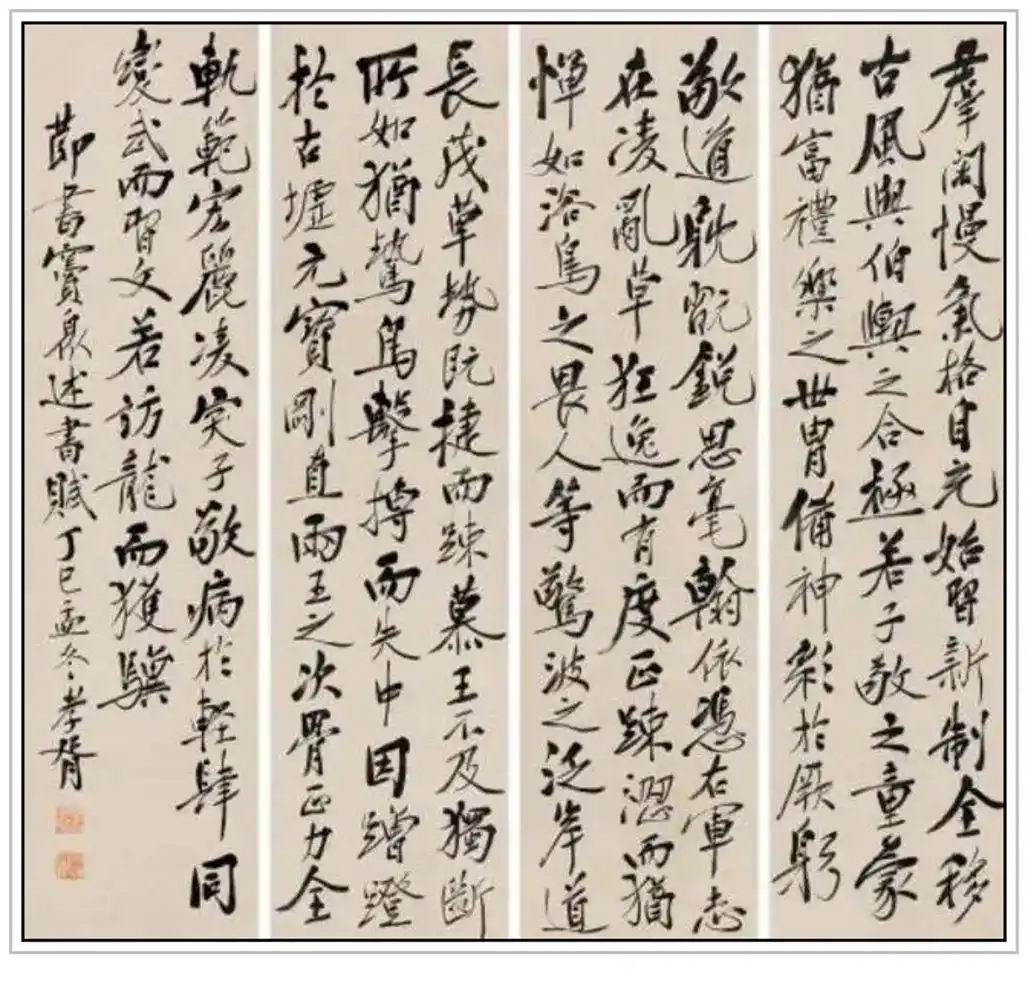 羣闊慢氣格自充始習新制全移
古風與伯輿之合極若子敬之童蒙
猶富禮樂之世胄備神彩於厥躬
敬道躭翫銳思毫翰依憑右軍志
在凌亂草狂逸而有度正踈澀而猶
憚如浴鳥之畏人等驚波之泛岸道
長茂草勢既捷而踈慕王不及獨斷
所如猶鷙鳥擊搏而失中因蹭蹬
於古墟元寶剛直兩王之次骨正力全
軌範宏麗凌突子敬病於輕肆同
變武而習文若訪龍而獲驥
節書竇臮述書賦丁巳孟冬孝胥